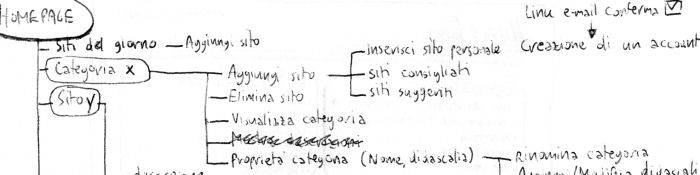 HOMEPAGE
Link e-mail conferma
Siti del giorno — Aggiungi sito
Inserisci sito personale
Creazione di un account
Categoria X
Aggiungi sito
siti consigliati
Sito y
Elimina sito
siti suggeriti
Visualizza categoria
Proprietà categoria (Nome, didascalia)
Rinomina categoria